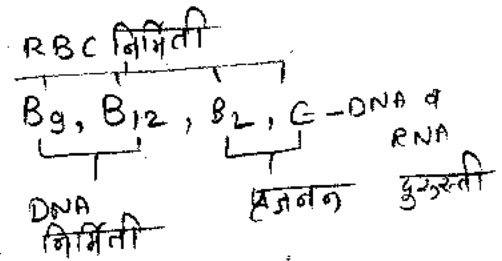 RBC निर्मिती
B9, B12, B2, C - DNA व
RNA
दुरुस्ती
DNA
निर्मिती
प्रजनन